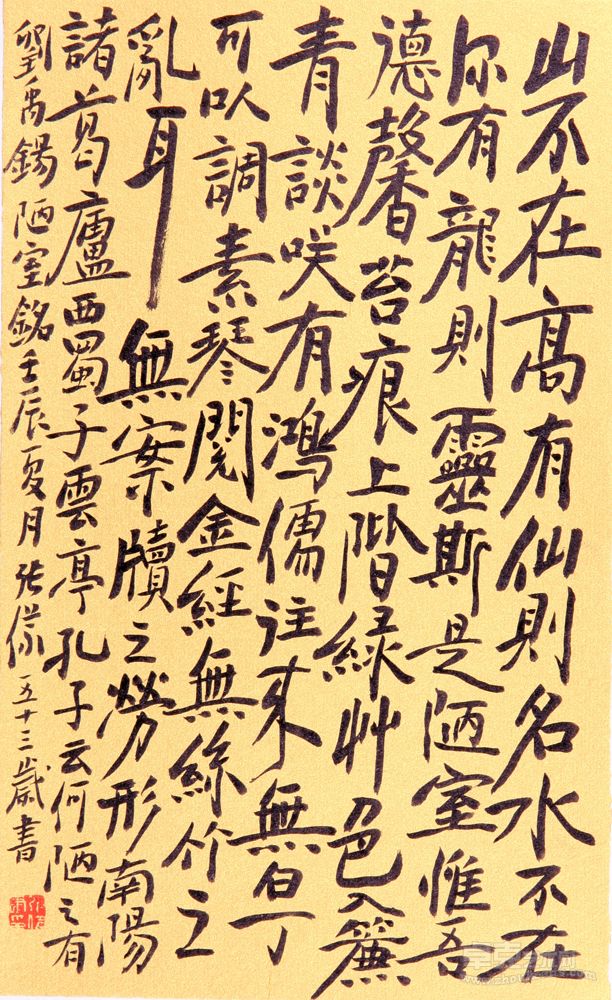 山不在高有仙則名水不在
深有龍則靈斯是陋室惟吾
德馨苔痕上階綠艸色入簾
青談咲有鴻儒往來無白丁
可以調素琴閱金經無絲竹之
亂耳無案牘之勞形南陽
諸葛廬西蜀子雲亭孔子云何陋之有
劉禹錫陋室銘壬辰夏月張保五十三歲書